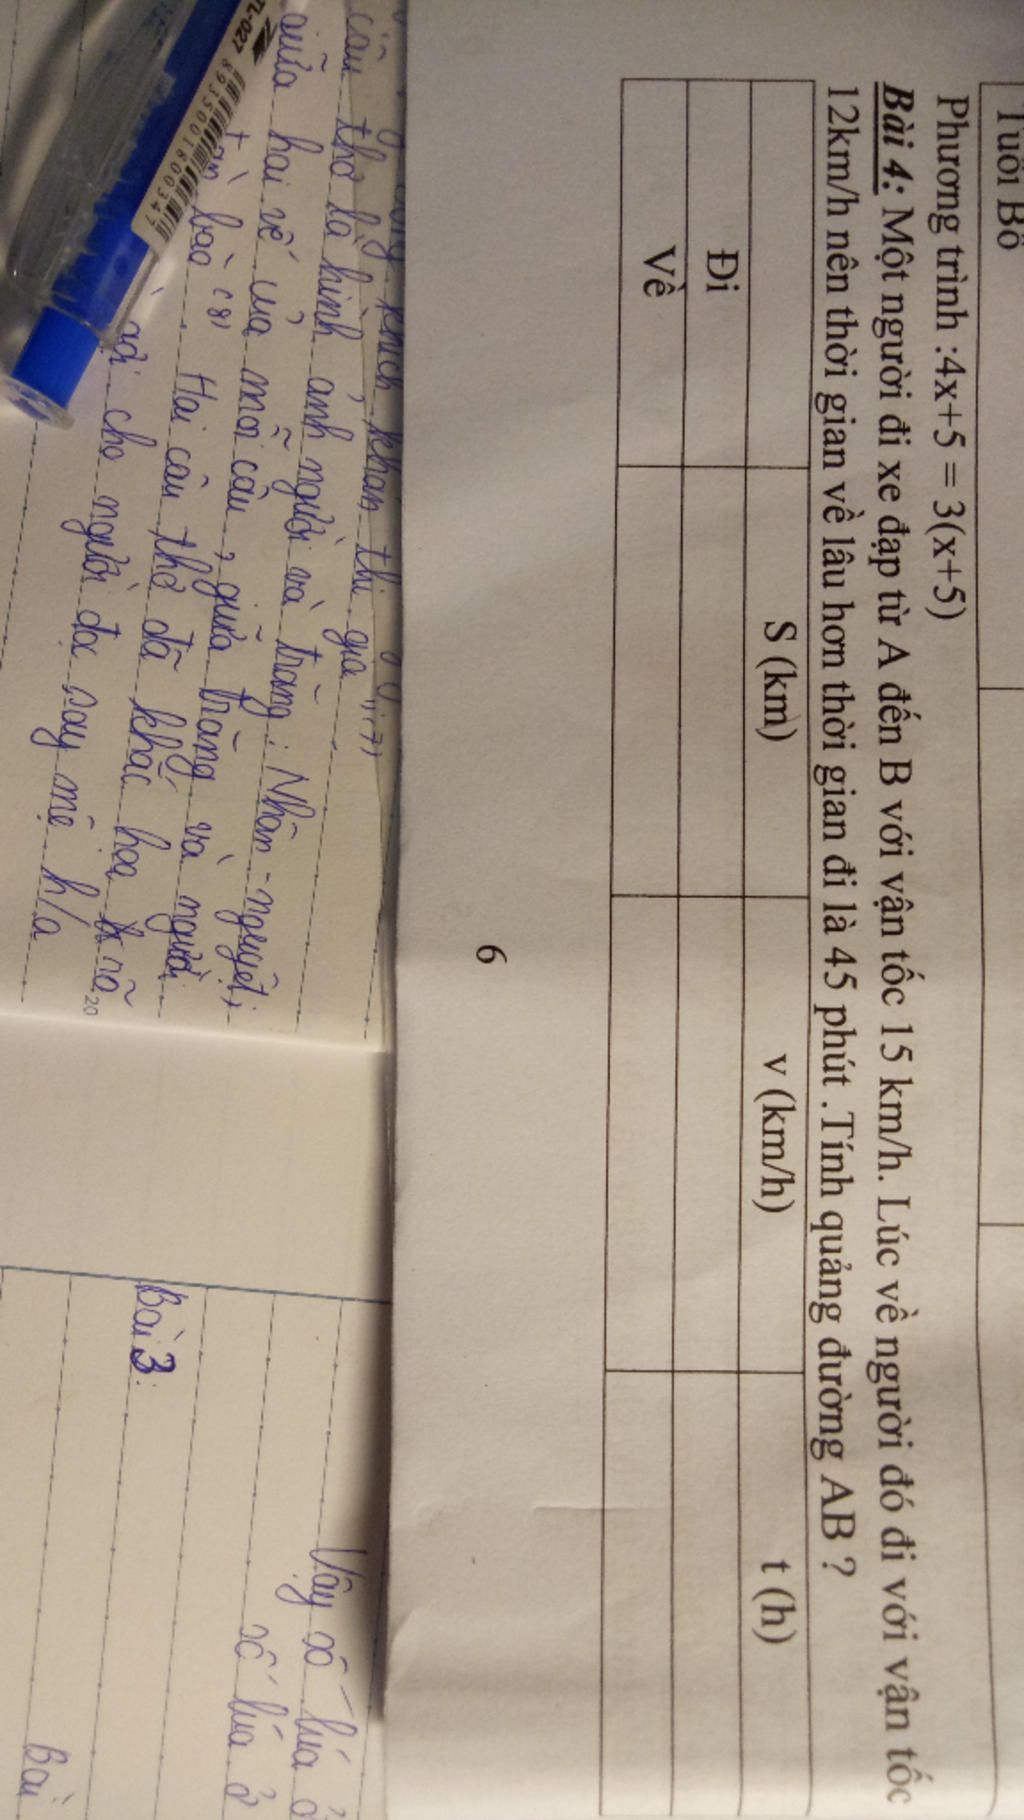 Tuổi Bố
Phương trình :4x+5 = 3(x+5)
Bài 4: Một người đi xe đạp từ A đến B với vận tốc 15 km/h. Lúc về người đó đi với vận tốc
12km/h nên thời gian về lâu hơn thời gian đi là 45 phút .Tính quảng đường AB ?
S (km) v (km/h) t (h)
Đi
Về
6
khích khán thi gia (7)
câu thơ là hình ảnh người và trăng: Nhân - nguyệt;
giữa hai vế của mỗi câu, giữa trăng và người
bào (8). Hai câu thơ đã khắc hoạ rõ
cho người đọc say mê h/a
20
TL-027
8935001800347
Vậy số lúa ở
số lúa ở
Bài 3:
Bài